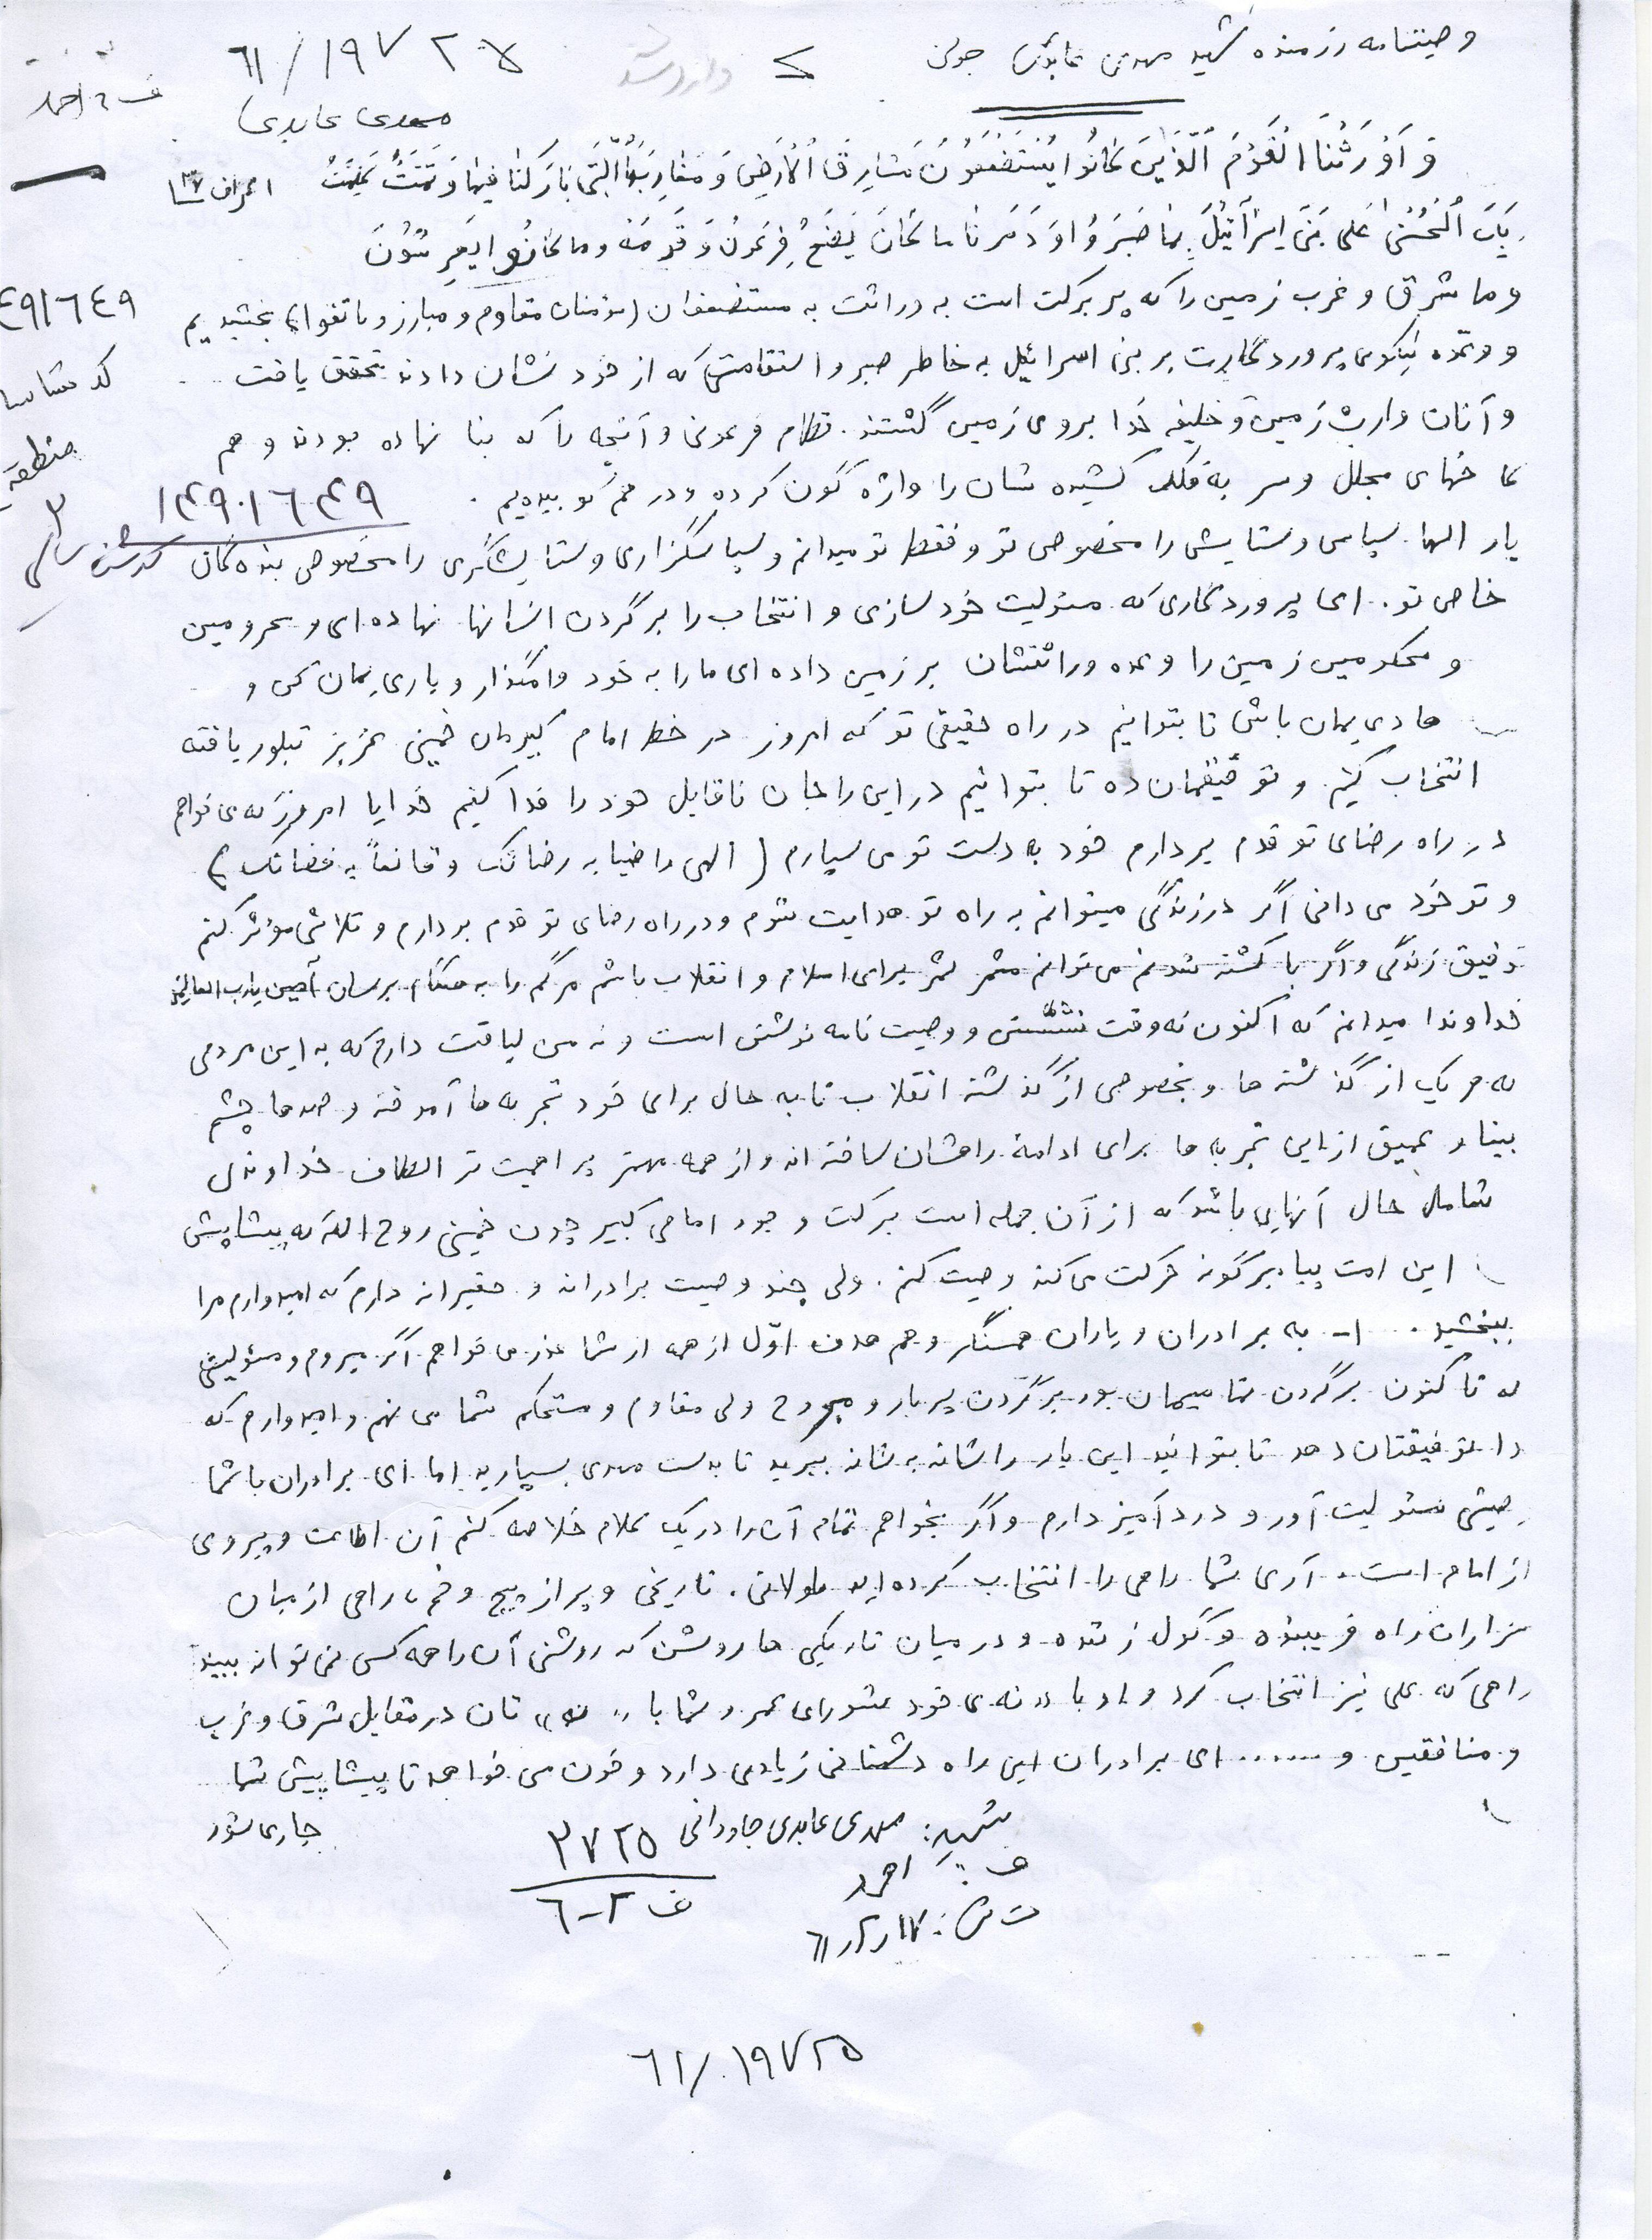 وصیتنامه رزمنده شهید مهدی عابدی
۶۱/۱۹۷۲۵
مهدی عابدی
ف ۲ احمد
وَ اَوْرَثْنَا الْقَوْمَ الَّذینَ کانُوا یُسْتَضْعَفُونَ مَشارِقَ الْاَرْضِ وَ مَغارِبَهَا الَّتی بارَکْنا فیها وَ تَمَّتْ کَلِمَتُ اعراف ۱۳۷
رَبِّکَ الْحُسْنیٰ عَلی بَنی اِسْرآئیلَ بِما صَبَرُوا وَ دَمَّرْنا ما کانَ یَصْنَعُ فِرْعَوْنُ وَ قَوْمُهُ وما کانُوا یَعْرِشُونَ
وما شرق و غرب زمین را که پر برکت است به وراثت به مستضعفان (مؤمنان مقاوم و مبارز و باتقوا) بخشیدیم
و وعده نیکوی پروردگارت بر بنی اسرائیل به خاطر صبر و استقامتی که از خود نشان دادند تحقق یافت
و آنان وارث زمین و خلیفه خدا بروی زمین گشتند. نظام فرعونی و آنچه را که بنا نهاده بودند و هم
کاخهای مجلل و سر به فلک کشیده شان را واژه گون کرده و در هم کوبیدیم.
۱۴۹۰۱۶۴۹
۴۹۱۶۴۹
کد شناسا
منطقه
۲
بار الها. سپاس و ستایش را مخصوص تو و فقط تو میدانم و سپاسگزاری و ستایشگری را مخصوص بنده گان
خاص تو. ای پروردگاری که مسئولیت خودسازی و انتخاب را بر گردن انسانها نهاده ای و محرومین
و محکومین زمین را وعده وراثتشان بر زمین داده ای ما را به خود وامگذار و یاریمان کن و
هادیمان باش تا بتوانیم در راه حقیقی تو که امروز در خط امام کبیرمان خمینی عزیز تبلور یافته
انتخاب کنیم و توفیقمان ده تا بتوانیم در این راه جان ناقابل خود را فدا کنیم خدایا امروز که می خواهم
در راه رضای تو قدم بردارم خود به دست تو می سپارم (الهی راضیا به رضائک و قانعاً به قضائک)
و تو خود می دانی اگر در زندگی میتوانم به راه تو هدایت شوم و در راه رضای تو قدم بردارم و تلاشی مؤثر کنم
توفیق زندگی و اگر با کشته شدنم می توانم مثمر ثمر برای اسلام و انقلاب باشم مرگم را به هنگام برسان آمین یارب العالمین
خداوندا میدانم که اکنون نه وقت نشستن و وصیت نامه نوشتن است و نه من لیاقت دارم که به این مردمی
که هر یک از گذشته ها و بخصوص از گذشته انقلاب تا به حال برای خود تجربه ها آموخته و صدها چشم
بینا و عمیق از این تجربه ها برای ادامهٔ راهشان ساخته اند و از همه مهمتر پر اهمیت تر الطاف خداوندی
شامل حال آنهایی باشد که از آن جمله است برکت وجود امامی کبیر چون خمینی روح الله که پیشاپیش
این امت پیامبرگونه حرکت می کند وصیت کنم. ولی چند وصیت برادرانه و حقیرانه دارم که امیدوارم مرا
ببخشید. ۱- به برادران و یاران همسنگر و هم هدف اوّل از همه از شما عذر می خواهم اگر میروم و مسئولیتی
که تاکنون بر گردن تمامیمان بود بر گردن پر بار و مجروح ولی مقاوم و مستحکم شما می نهم و امیدوارم که
خدا توفیقتان دهد تا بتوانید این بار را شانه به شانه ببرید تا بدست مهدی بسپارید اما ای برادران با شما
وصیتی مسئولیت آور و دردآمیز دارم و اگر بخواهم تمام آن را در یک کلام خلاصه کنم آن اطاعت و پیروی
از امام است. آری شما راهی را انتخاب کرده اید طولانی. تاریخی و پر از پیچ و خم، راهی از میان
هزاران راه فریبنده و گول زننده و در میان تاریکی ها روشن که روشنی آن را همه کسی نمی تواند ببیند
راهی که علی نیز انتخاب کرد و او با «نه» ی خود بشورای عمر و شما با «نه» تان در مقابل شرق و غرب
و منافقین و ...... ای برادران این راه دشمنانی زیادی دارد و خون می خواهد تا پیشاپیش شما
جاری شود
شهید: مهدی عابدی جاودانی ۲۷۲۵
ف. پ: احمد
ف ۲-۶
۶۱/۱۹۷۲۵